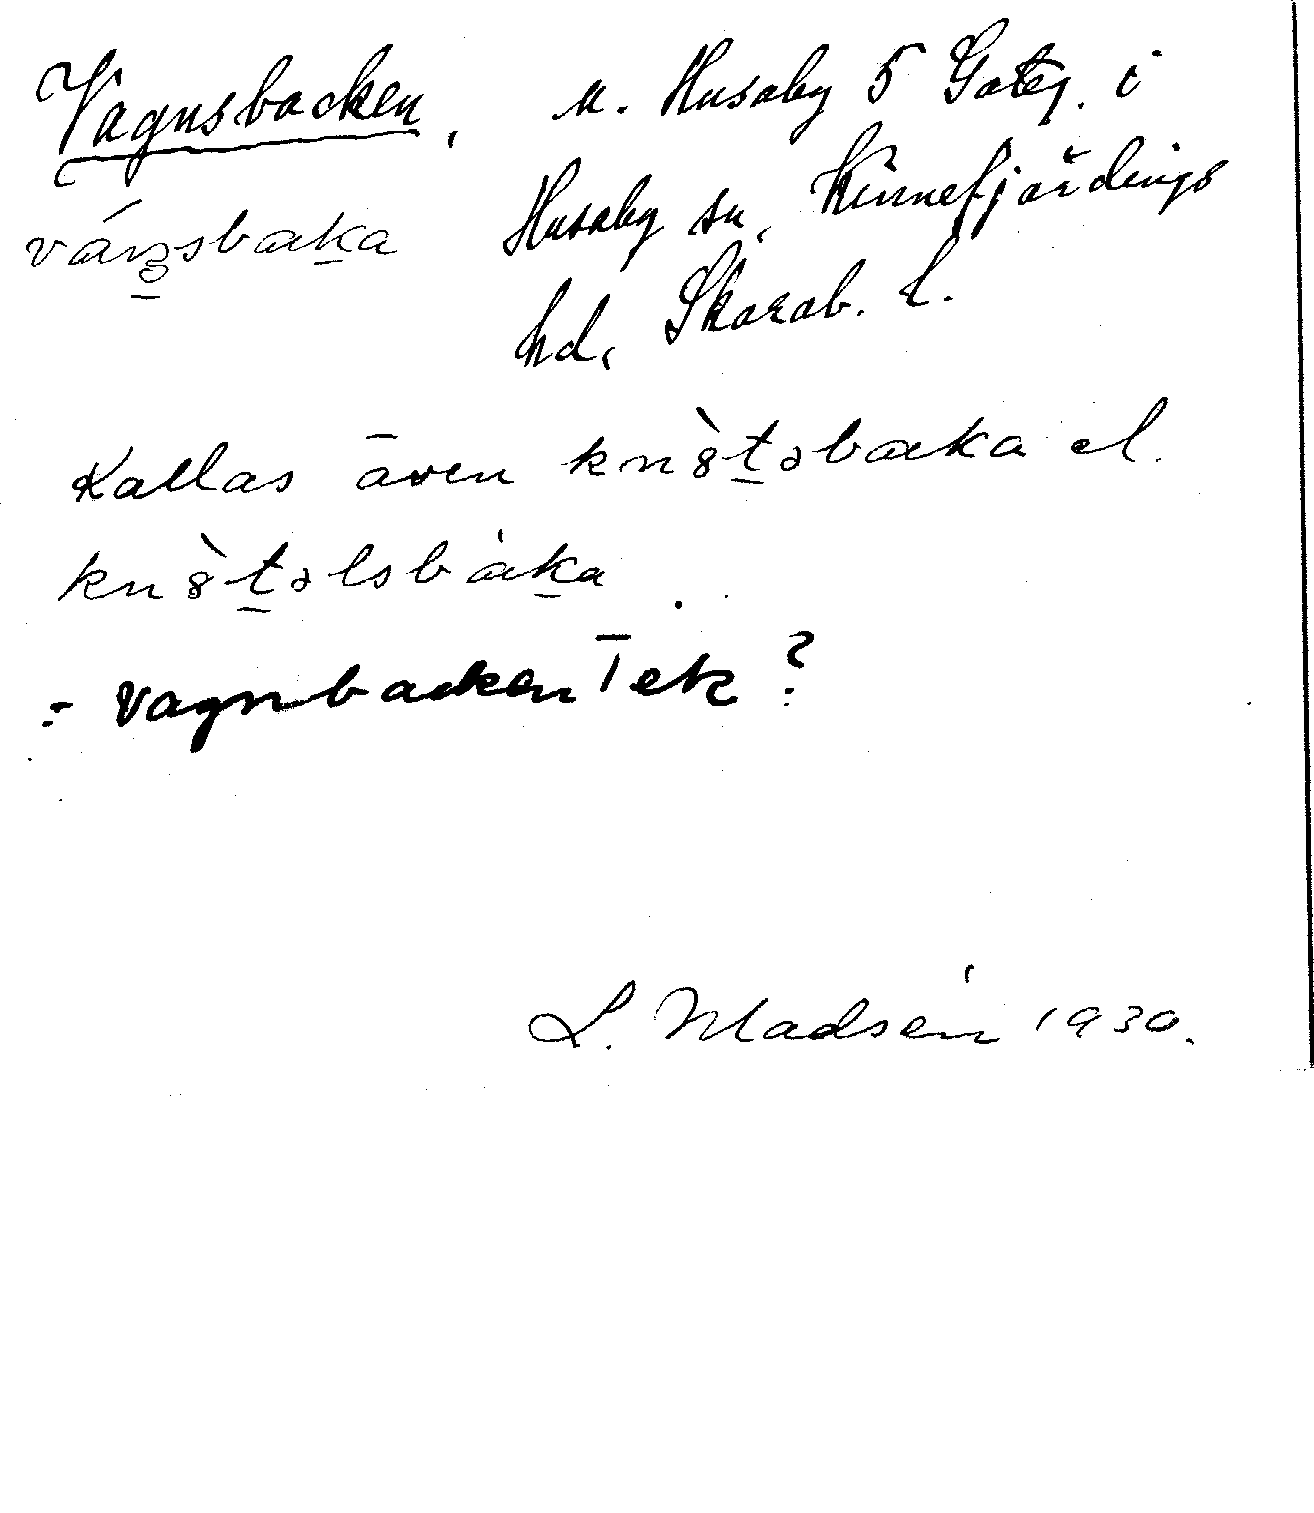 Vagnsbacken, u. Husaby 5 Gateg. i
vánsbaka Husaby sn, Kinnefjärdings
hd, Skarab. l.
Kallas även knı̀təbaka el.
knı̀təlsbáka.
= Vagnbacken T ek ?
L. Madsén 1930.